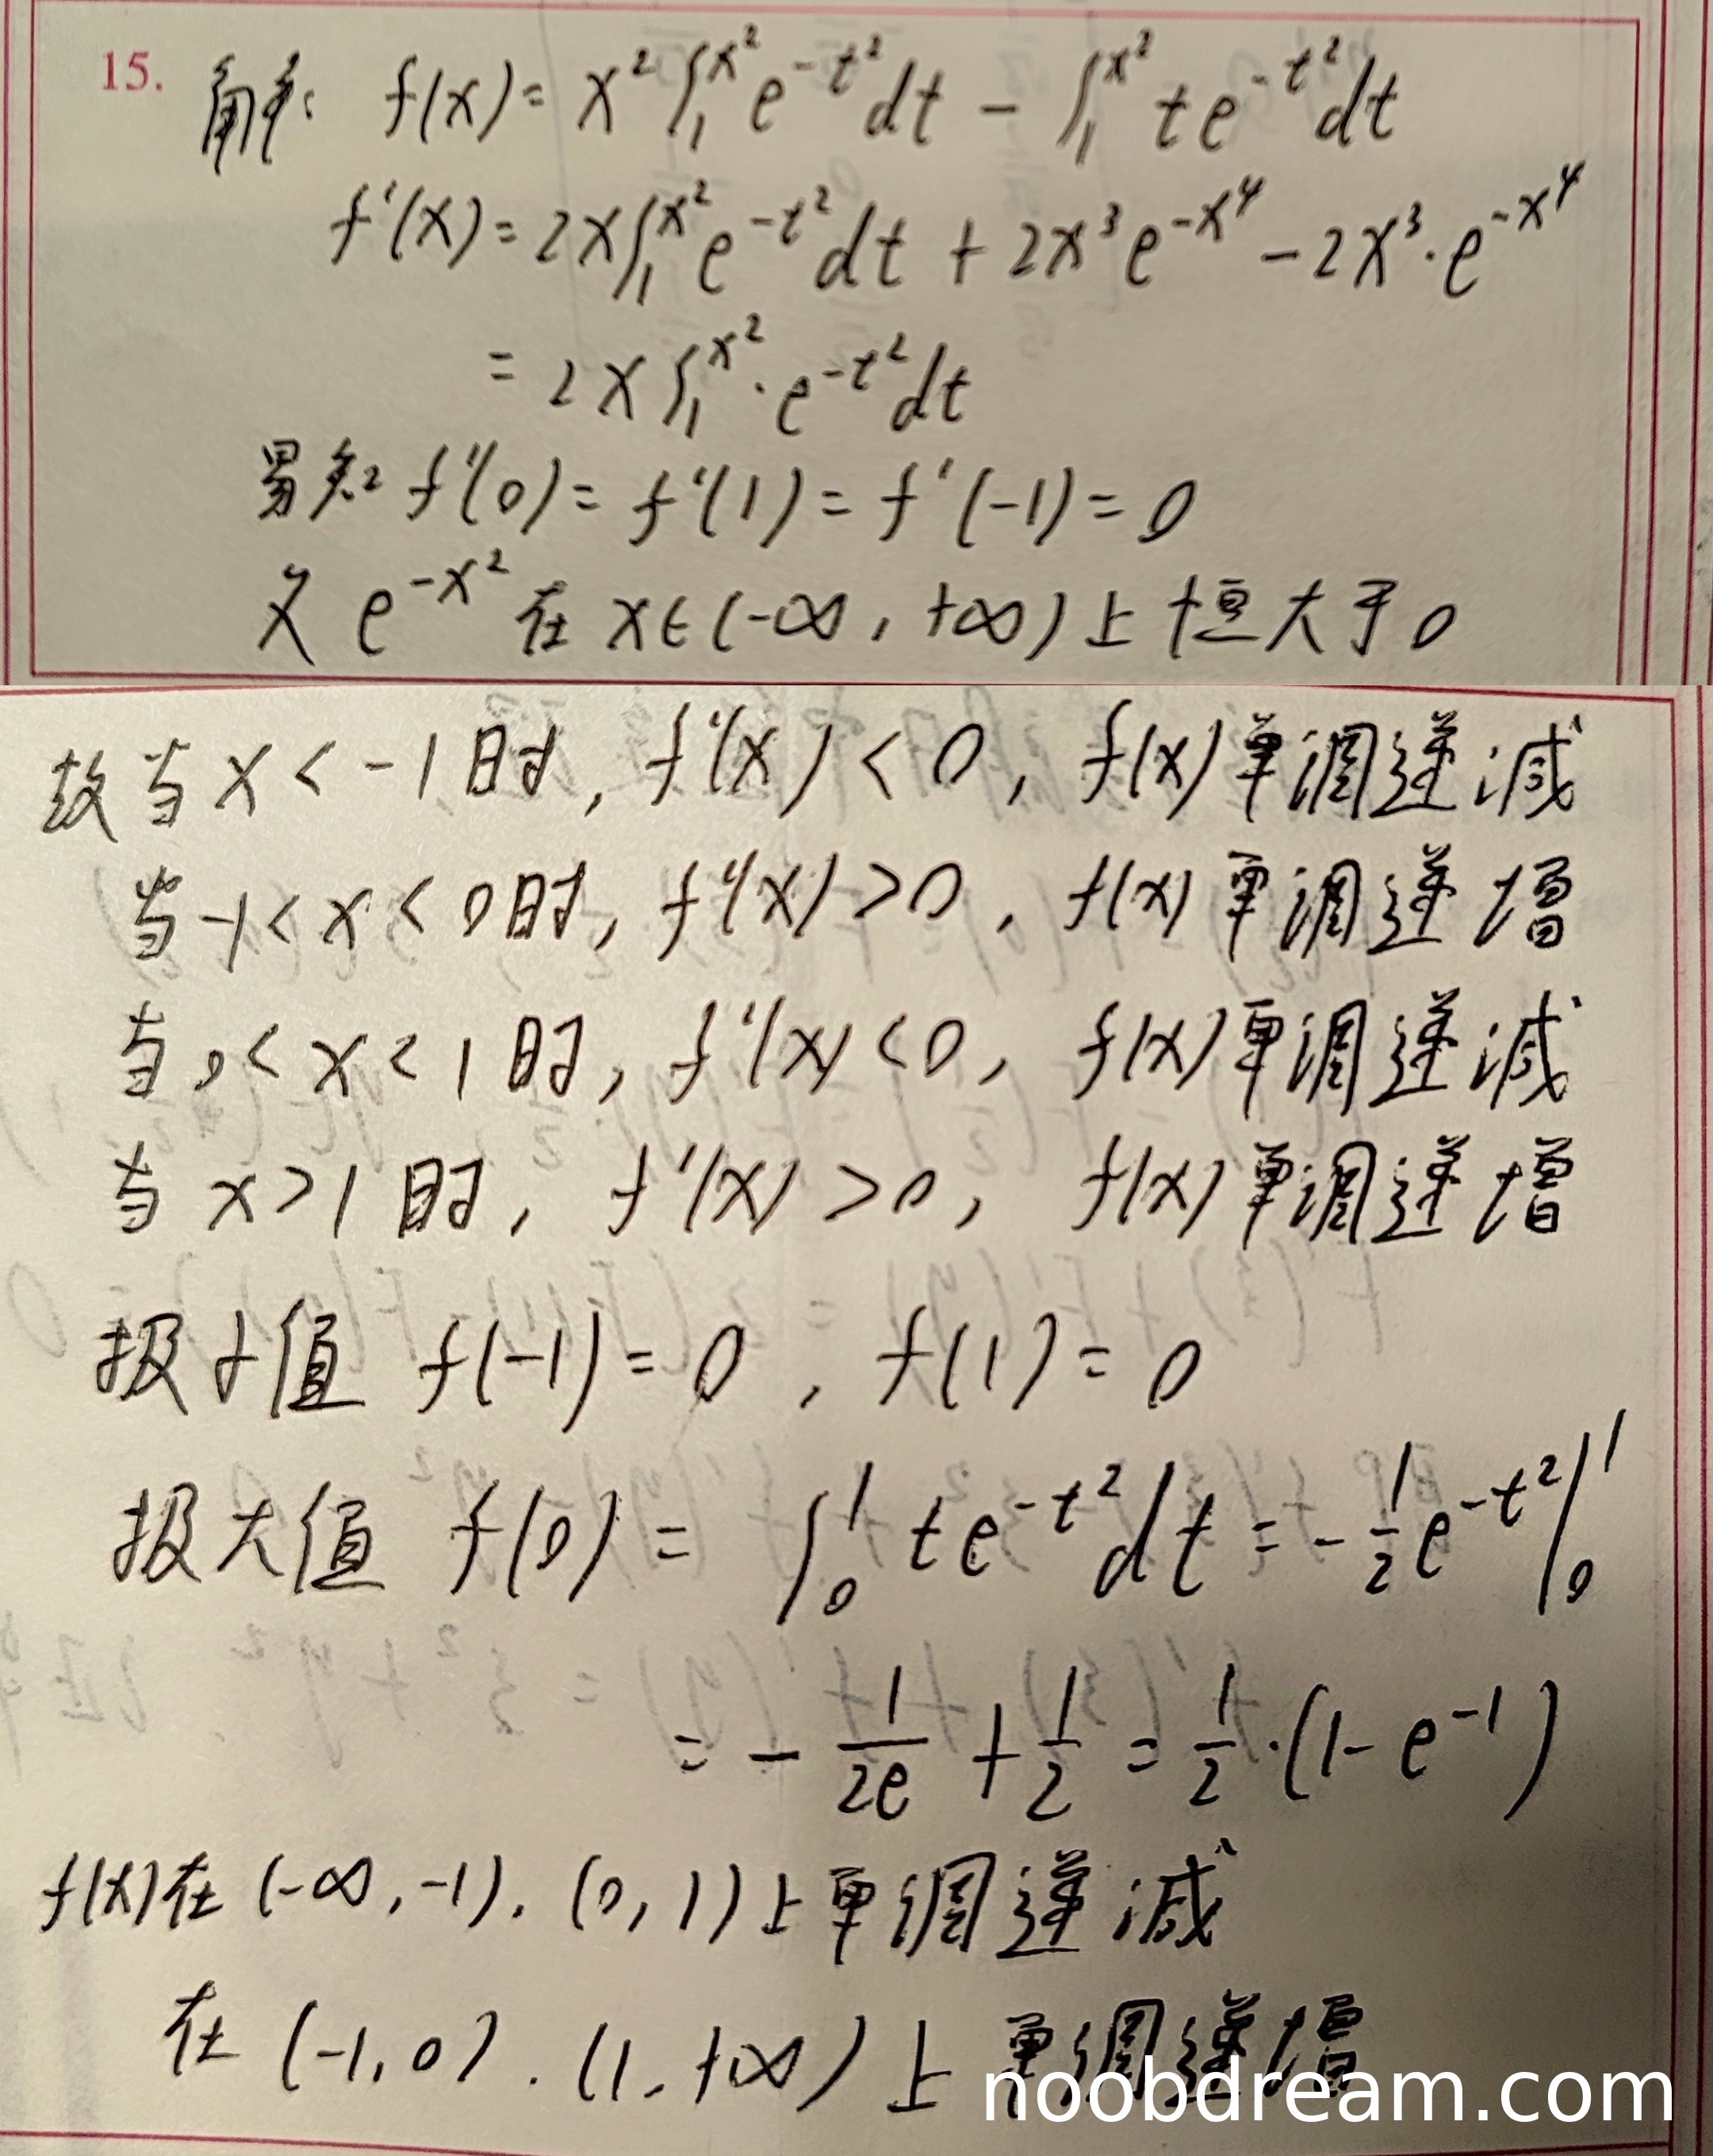 15. 解: f(x) = x² ∫₁^{x²} e^{-t²} dt - ∫₁^{x²} t e^{-t²} dt
f'(x) = 2x ∫₁^{x²} e^{-t²} dt + 2x³ e^{-x⁴} - 2x³ · e^{-x⁴}
= 2x ∫₁^{x²} · e^{-t²} dt
易知 f'(0) = f'(1) = f'(-1) = 0
又 e^{-x²} 在 x∈(-∞, +∞) 上恒大于0
故当 x < -1 时, f'(x) < 0, f(x) 单调递减
当 -1 < x < 0 时, f'(x) > 0, f(x) 单调递增
当 0 < x < 1 时, f'(x) < 0, f(x) 单调递减
当 x > 1 时, f'(x) > 0, f(x) 单调递增
极小值 f(-1) = 0, f(1) = 0
极大值 f(0) = ∫₀¹ t e^{-t²} dt = -\frac{1}{2} e^{-t²} |₀¹
= -\frac{1}{2e} + \frac{1}{2} = \frac{1}{2} · (1 - e^{-1})
f(x) 在 (-∞, -1), (0, 1) 上单调递减
在 (-1, 0), (1, +∞) 上单调递增
noobdream.com